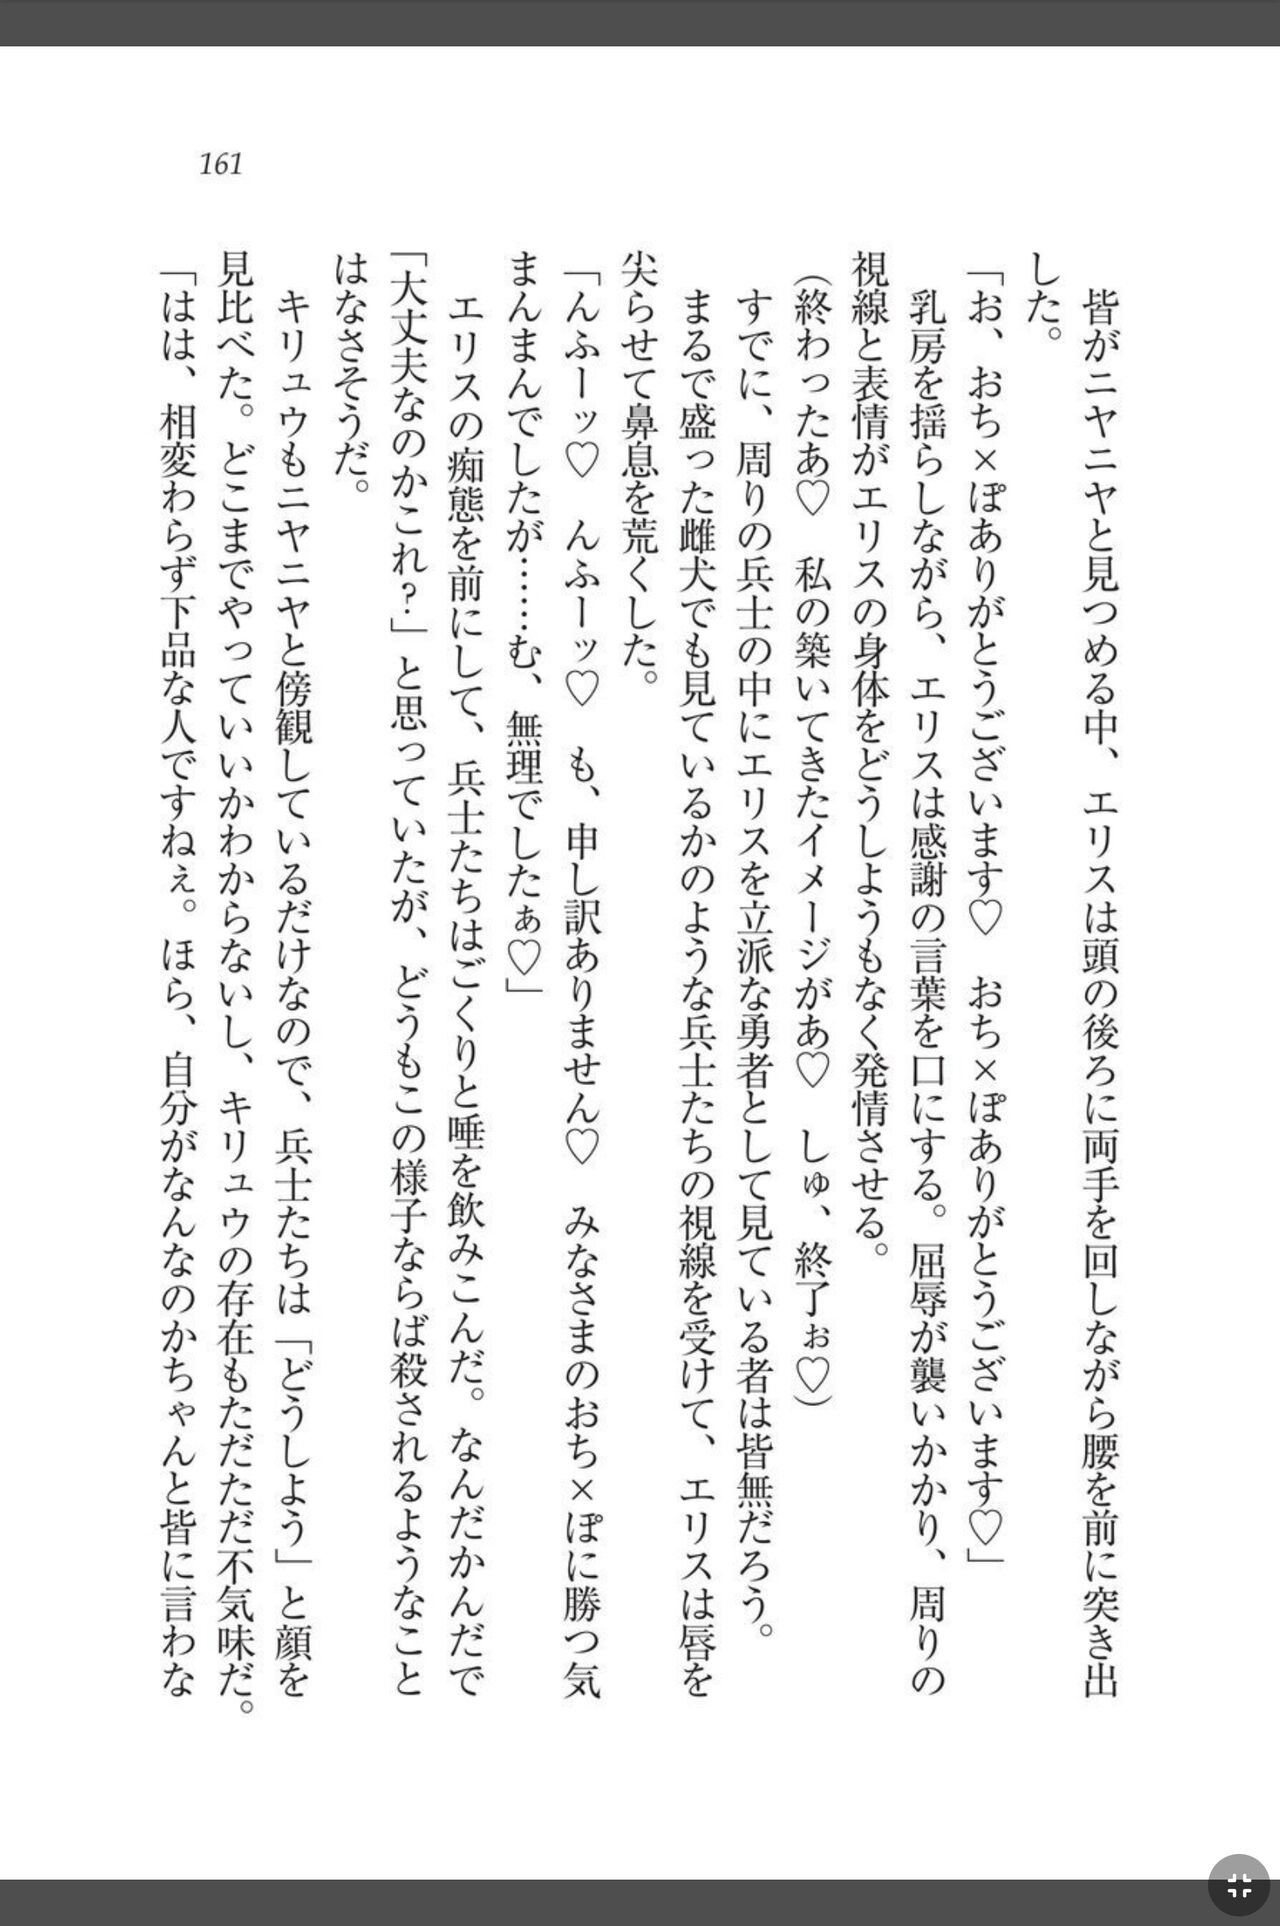 161
皆がニヤニヤと見つめる中、エリスは頭の後ろに両手を回しながら腰を前に突き出
した。
「お、おち×ぽありがとうございます♡　おち×ぽありがとうございます♡」
乳房を揺らしながら、エリスは感謝の言葉を口にする。屈辱が襲いかかり、周りの
視線と表情がエリスの身体をどうしようもなく発情させる。
（終わったあ♡　私の築いてきたイメージがあ♡　しゅ、終了ぉ♡）
すでに、周りの兵士の中にエリスを立派な勇者として見ている者は皆無だろう。
まるで盛った雌犬でも見ているかのような兵士たちの視線を受けて、エリスは唇を
尖らせて鼻息を荒くした。
「んふーッ♡　んふーッ♡　も、申し訳ありません♡　みなさまのおち×ぽに勝つ気
まんまんでしたが……む、無理でしたぁ♡」
エリスの痴態を前にして、兵士たちはごくりと唾を飲みこんだ。なんだかんだで
「大丈夫なのかこれ？」と思っていたが、どうもこの様子ならば殺されるようなこと
はなさそうだ。
キリュウもニヤニヤと傍観しているだけなので、兵士たちは「どうしよう」と顔を
見比べた。どこまでやっていいかわからないし、キリュウの存在もただただ不気味だ。
「はは、相変わらず下品な人ですねぇ。ほら、自分がなんなのかちゃんと皆に言わな